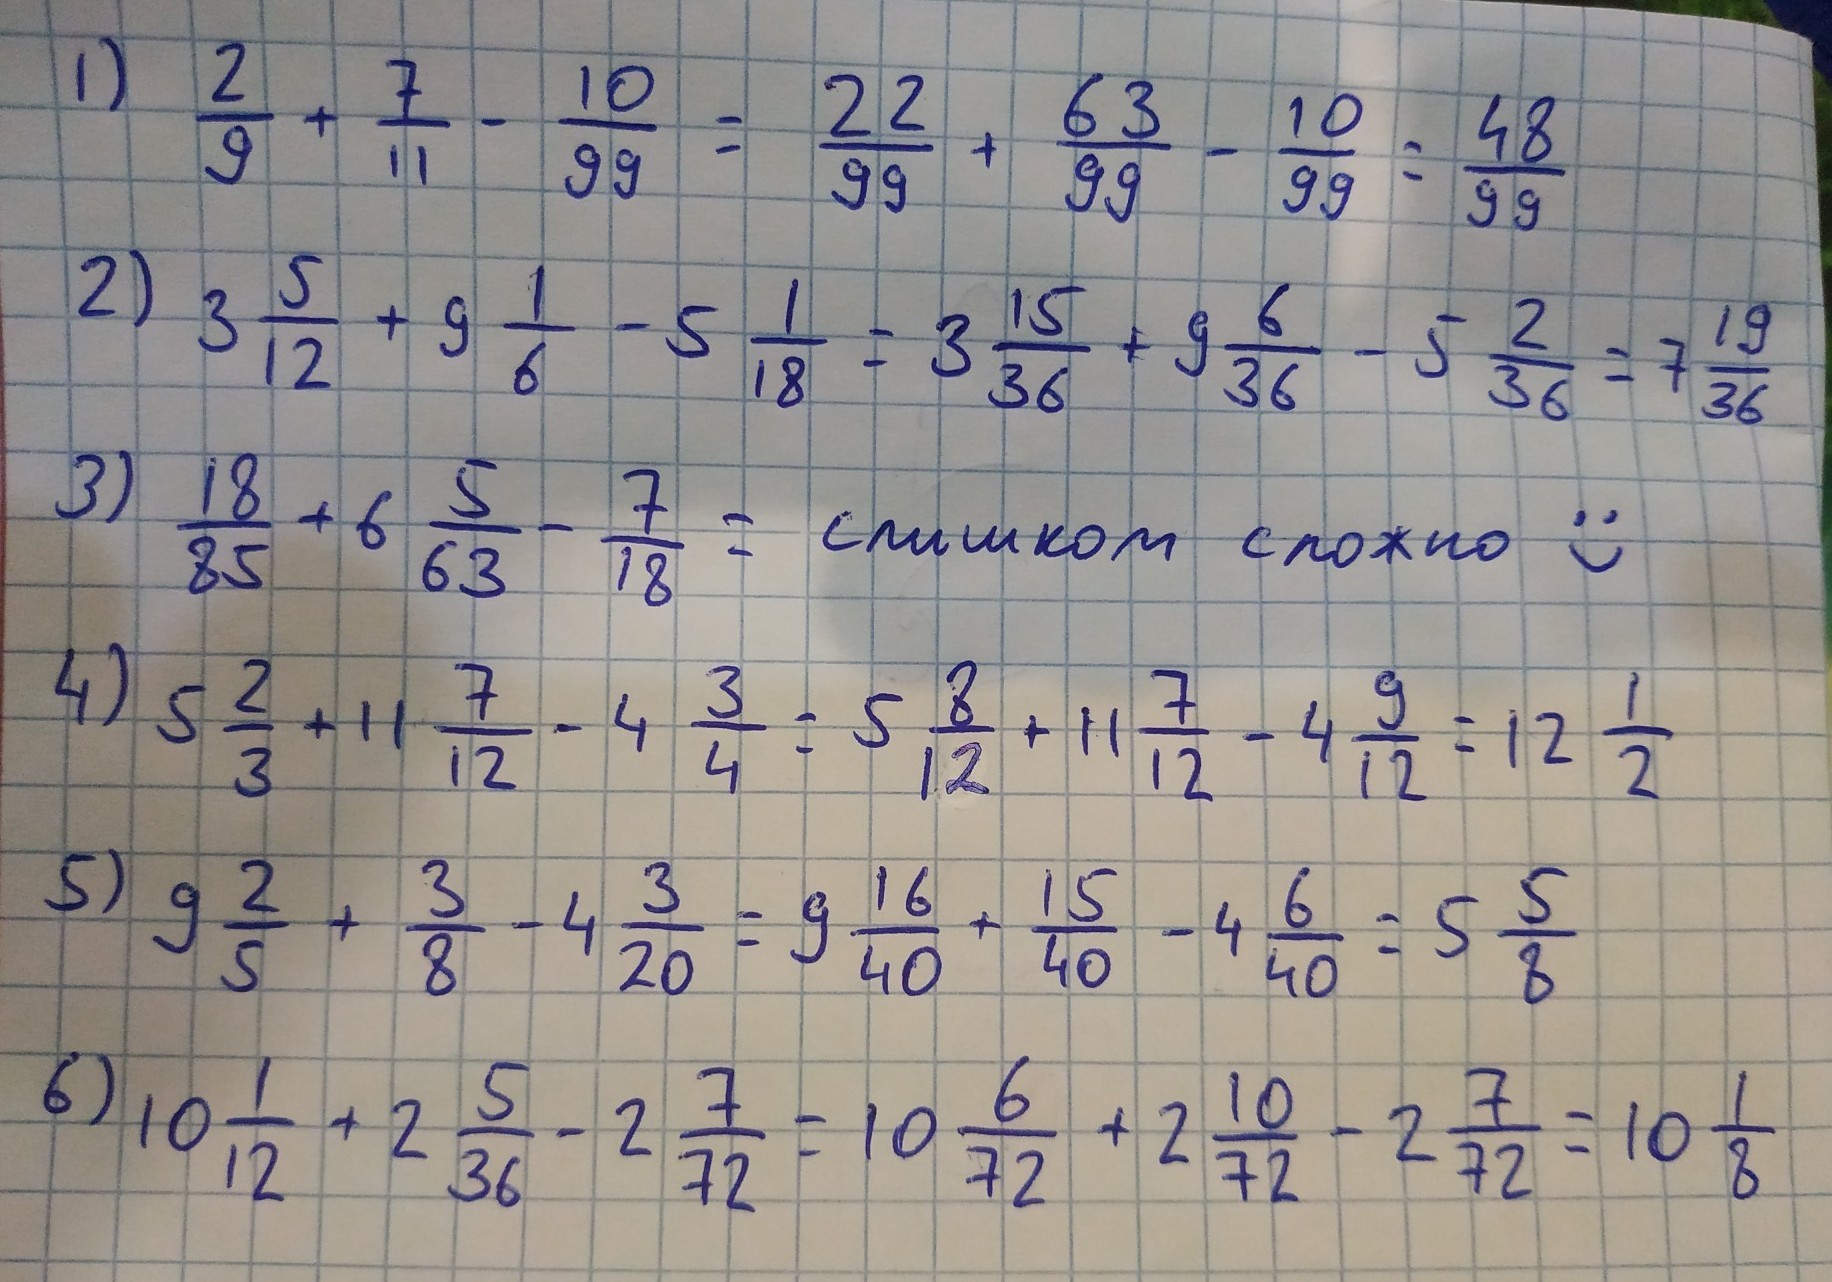 1) 2/9 + 7/11 - 10/99 = 22/99 + 63/99 - 10/99 = 48/99
2) 3 5/12 + 9 1/6 - 5 1/18 = 3 15/36 + 9 6/36 - 5 2/36 = 7 19/36
3) 18/85 + 6 5/63 - 7/18 = слишком сложно :)
4) 5 2/3 + 11 7/12 - 4 3/4 = 5 8/12 + 11 7/12 - 4 9/12 = 12 1/2
5) 9 2/5 + 3/8 - 4 3/20 = 9 16/40 + 15/40 - 4 6/40 = 5 5/8
6) 10 1/12 + 2 5/36 - 2 7/72 = 10 6/72 + 2 10/72 - 2 7/72 = 10 1/8